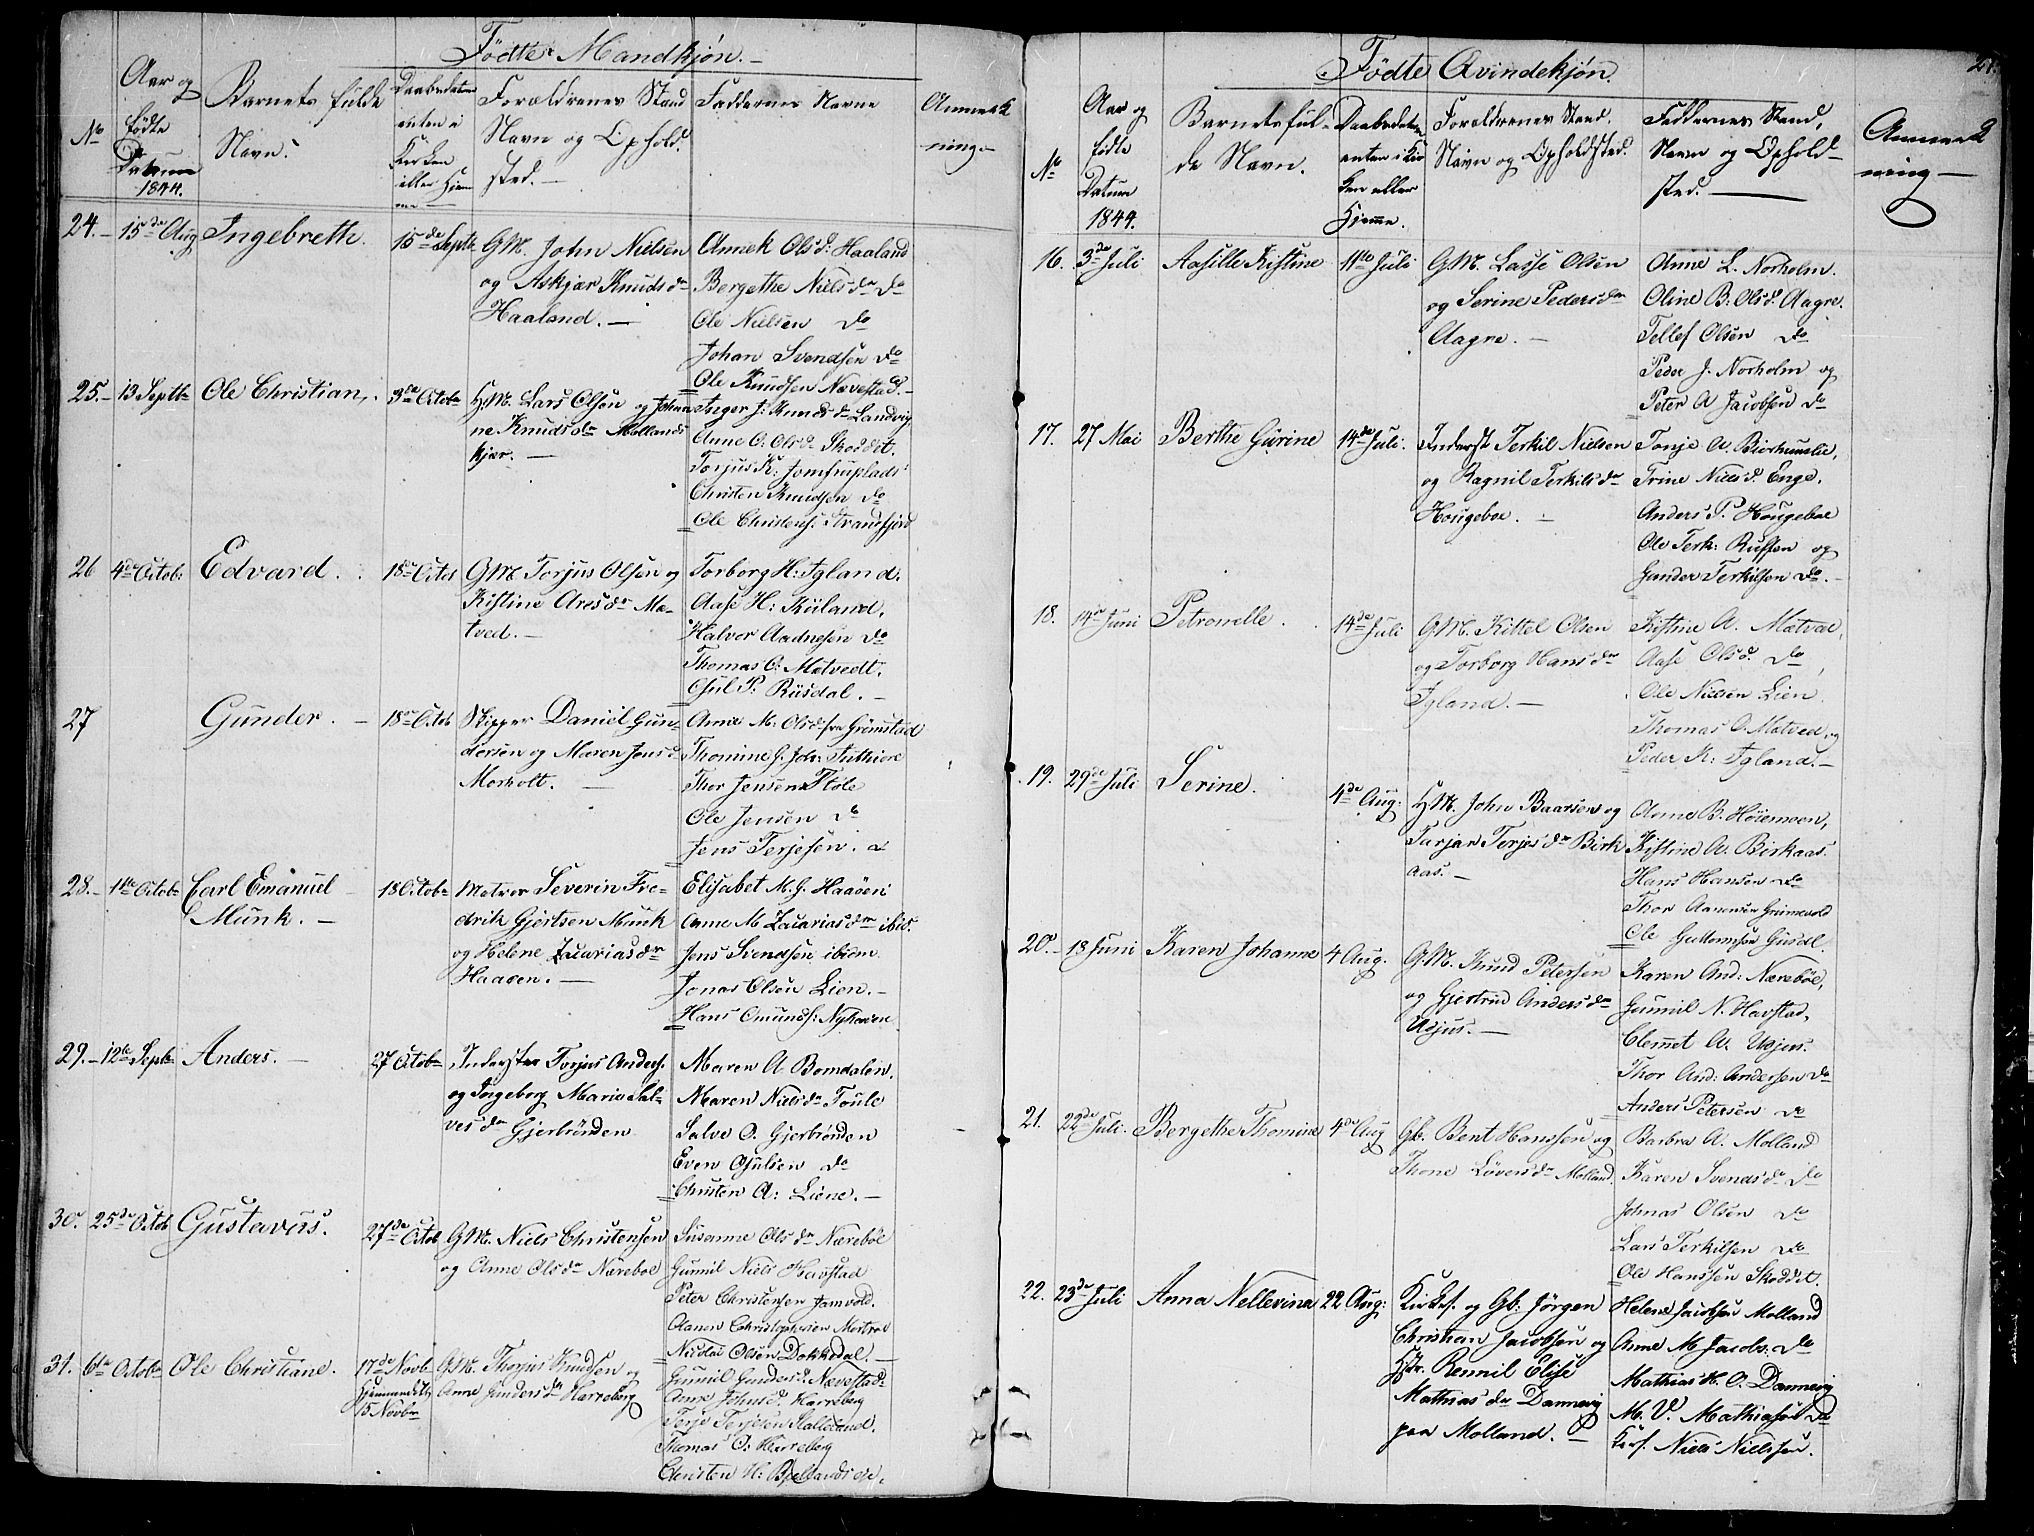 Födte Mandkjøn. –
No
Aar og
födte
Datum
1844.
Barnets fulde
Navn.
Daabsdatum
enten i
Kirken
eller Hjem
me
Forældrenes Stand
Navn og Ophold.
sted. –
Faddernes Navne
Anmærk
ning –
24. – 15de Aug Ingebreth. 15de Septb
GM. John Nielsen
og Askjær Knudsdr
Haaland. –
Annek Olsd: Haaland
Bergethe Nielsdr do
Ole Nielsen do
Johan Svendsen do
Ole Knudsen Nævestad. –
25. – 13 Septbr Ole Christian. 3de Octobr
H.M. Lars Olsen og Johan
ne Knudsdr Mollands
kjær. –
Inger J: Knudsdr Landvig
Anne O. Olsdr Skoddet.
Torjus K: Jomfruplads
Christen Knudsen do
Ole Christens: Strandfjord
26 4de Octob: Edvard. 18de Octob
GM Torjus Olsen og
Kistine Aresdr Mæ-
tved. –
Torborg H: Igland.
Aase H: Kuland,
Halvor Aadnesen do
Thomas O: Mætvedt.
Osul P: Rusdal. –
27 Gunder. – 18de Octob
Skipper Daniel Gun-
dersen og Maren Jensd
Morholt. –
Anne M. Olsd fra Grimstad
Thomine G. Jdr: Inthiore
Thor Jensen Stöle
Ole Jensen do
Jens Terjesen. do
28. – 1ste Octobr Carl Emanuel
Munk. –
18 Octobr
Matros Severin Fre-
drik Gjertsen Munk
og Helene Zacariasdr
Haaøen. –
Elisabet M. G. Haaöen
Anne M Zacariasdr ibid.
Jens Svendsen ibidm
Jonas Olsen Lien. –
Hans Omunds: Nyhaven
29. – 12te Septbr Anders. – 27 Octobr
Inderster Torjus Anders.
og Ingeborg Marie Sal-
vesdr Gjerbrönden
Maren A. Bomdalen.
Maren Nielsdr Toule
Salve O. Gjerbrönden
Even Osulsen do
Christen A: Liene. –
30. 25de Octob Gustavus. 27de Octob
GM. Niels Christensen
og Anne Olsdr Næreböe
Susanne Olsdr Næreböe
Gunnil Niels Havstad
Peter Christensen Jamvold.
Olanen Christophersen Mortræ
Nicolai Olsen Dokkedal. –
31. 6te Octobr Ole Christiane. 17de Novb
Hjemmedöbt
15 Novbr
GM. Thorjus Knudsen og
Anne Gundersdr Harreberg
Gunnil Gundersd: Nævestad
Anne Johnsd. Harreberg
Terje Terjesen Kalleland.
Thomas O: Harreberg
Christen H: Bjellandsøe.
Födte Qvindekjøn.
27.
No
Aar og
födte
Datum
1844.
Barnets ful-
de Navn.
Daabsdatum
enten i Kir
ken eller
Hjemme.
Forældrenes Stand.
Navn og Opholdsted.
Faddernes Stand,
Navn og Ophold-
sted. –
Anmærk
ning –
16. 3de Juli Aasille Kistine 11te Juli
GM. Lasse Olsen
og Serine Pedersdr
Aagre. –
Anne L. Norholm.
Oline B: Olsd. Aagre.
Tellef Olsen do
Peder J. Norholm og
Peter A Jacobsen do
17. 27 Mai Berthe Gurine 14de Juli.
Inderst Terkil Nielsen
og Ragnil Terkilsdr
Hougeboe. –
Tonje A. Biorkumslie,
Trine Nielsd. Enge.
Anders P. Hougeboe
Ole Terk: Russen og
Gunder Terkilsen do. –
18. 14de Juni Petronelle. 14de Juli
GM. Kittel Olsen
og Torborg Hansdr
Igland. –
Kistine A. Mætvet,
Aase Olsd. do,
Ole Nielsen Lien
Thomas O. Mætved, og
Peder K: Igland. –
19. 29de Juli Serine. 4de Aug:
H.M. John Baarsen og
Tarjær Terjesdr Birk
aas. –
Anne B: Höiemoen,
Kistine A. Birkaas.
Hans Hansen do
Thor Aanonsen Grimevold
Ole Guttormsen Gusdl.
20. – 13 Juni Karen Johanne 4 Aug.
G.M. Knud Petersen
og Gjertrud Andersdr
Udjus. –
Karen And: Næreböe,
Gunnil N. Havstad,
Clemet A. Udjus.
Thor And: Andersen do
Anders Petersen do
21. 22de Juli. Bergethe Thomine 4de Aug
Gb. Bent Hanssen og
Thone Löversdr Molland.
Barbra A. Molland
Karen Svendsdr do
Johnas Olsen do
Lars Terkilsen do
Ole Hanssen Skoddet.
22. 23de Juli Anna Nellevina 22 Aug:
Kirkes. og Gb: Jörgen
Christian Jacobsen og
Hstr. Rennil Elise
Mathiasdr Dannevig
paa Molland. –
Helene Jacobsen Molland
Anne M Jacobs: do
Mathias H. O. Dannevig
M. V. Mathiasen do
Kirs. Niels Nielssen.